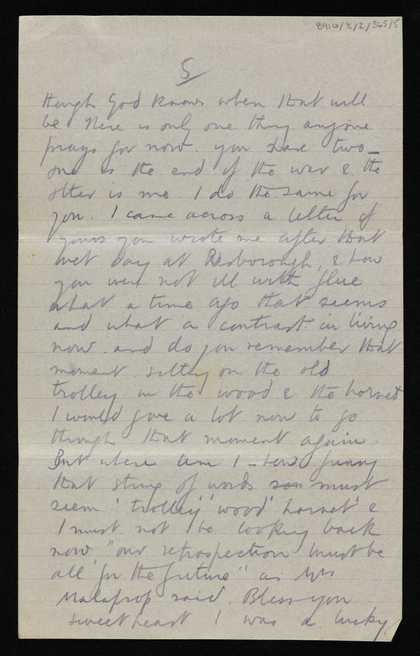 8910/2/2/365/5
5
though God knows when that will
be. There is only one thing anyone
prays for now. You have two -
one is the end of the war & the
other is me. I do the same for
you. I came across a letter of
yours you wrote me after that
wet day at & how
you were not ill with flue
what a time ago that seems
and what a contrast in living
now. and do you remember that
moment sitting on the old
trolley in the wood & the hornet
I would give a lot now to go
through that moment again.
But where am I - how funny
that string of words must
seem 'trolley' 'wood' hornet' &
I must not be looking back
now "our retrospection must be
all for the future" as Mrs
Malaprop said. Bless you
sweetheart I was a lucky